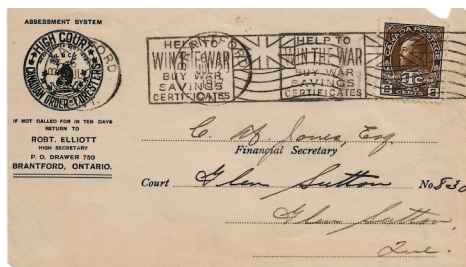 ASSESSMENT SYSTEM
HIGH COURT
CANADIAN ORDER OF FORESTERS
IF NOT CALLED FOR IN TEN DAYS
RETURN TO
ROBT. ELLIOTT
HIGH SECRETARY
P. O. DRAWER 750
BRANTFORD, ONTARIO.
HELP TO
WIN THE WAR
BUY WAR
SAVINGS
CERTIFICATES
HELP TO
WIN THE WAR
BUY WAR
SAVINGS
CERTIFICATES
CANADA POSTAGE
Jones, Esq.
Financial Secretary
Court Glen Sutton No. 830
Glen Sutton,
Que.